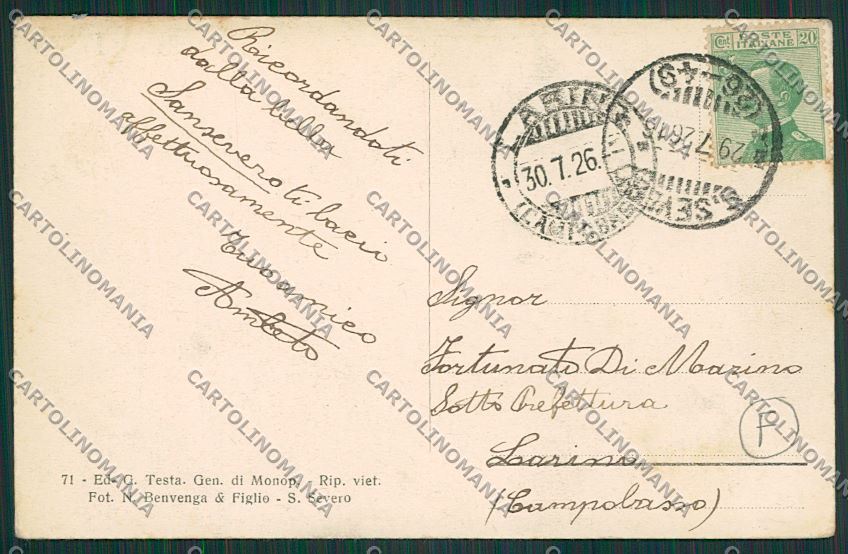 Ricordandoti
dalla bella
Sansevero ti bacio
affettuosamente
tuo amico
Amleto
71 - Ed. G. Testa. Gen. di Monop. - Rip. viet.
Fot. N. Benvenga & Figlio - S. Severo
Cent. POSTE ITALIANE 20
LARINO
30.7.26.
(CAMPOBASSO)
(26-49)
29.7.26
S. SEVERO
Signor
Fortunato Di Marino
Sotto Prefettura
Larino
(Campobasso)
F
CARTOLINOMANIA